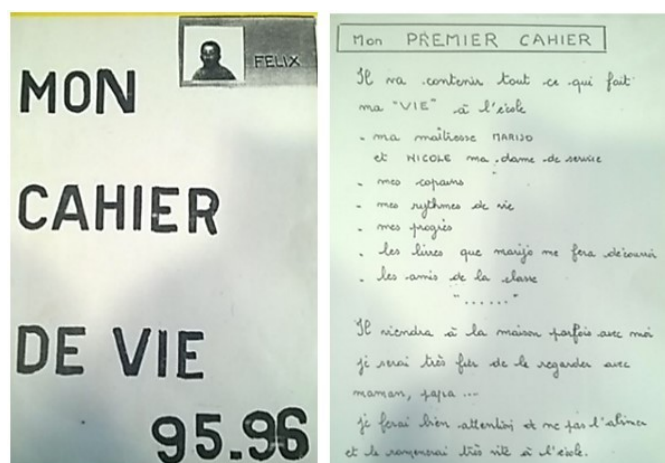 FELIX
MON
CAHIER
DE VIE
95.96
Mon PREMIER CAHIER
Il va contenir tout ce qui fait
ma "VIE" à l'école
- ma maîtresse MARIJO
et NICOLE ma dame de service
- mes copains
- mes rythmes de vie
- mes progrès
- les livres que marijo me fera découvrir
- les amis de la classe
"......"
Il viendra à la maison parfois avec moi
je serai très fier de le regarder avec
maman, papa ...
je ferai bien attention et ne pas l'abîmer
et le ramènerai très vite à l'école.